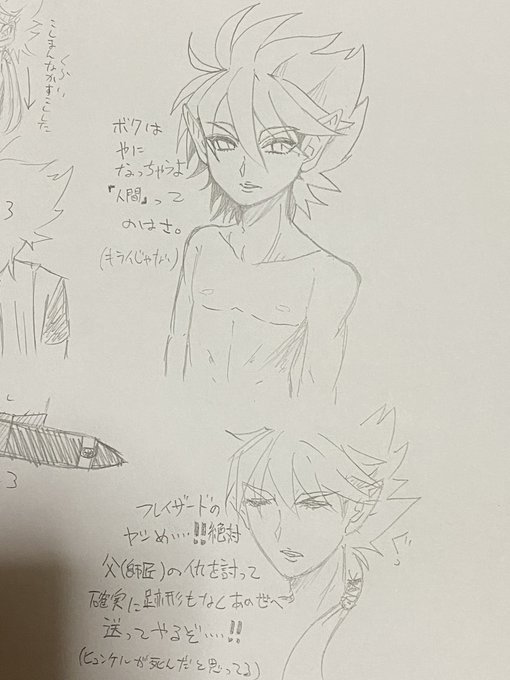 ボクは
やに
なっちゃうよ
『人間』って
のはさ。
(キライじゃない)
3
3
フレイザードの
ヤツめ・・・・!!絶対
父(師匠)の仇を討って
確実に跡形もなくあの世へ
送ってやるぞ・・・・!!
(ヒュンケルが死んだと思ってる)